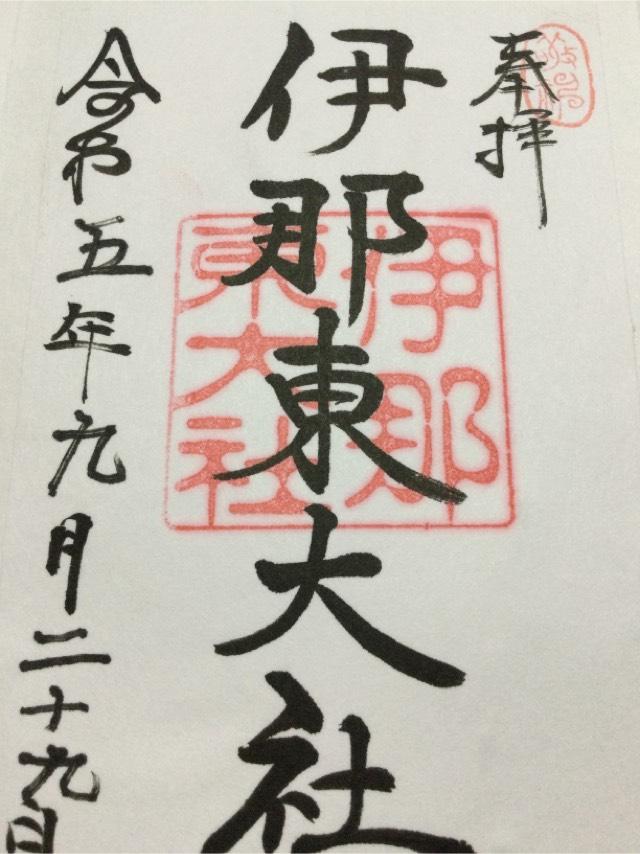 奉拝
伊那東大社
伊那
東大社
令和五年九月二十九日